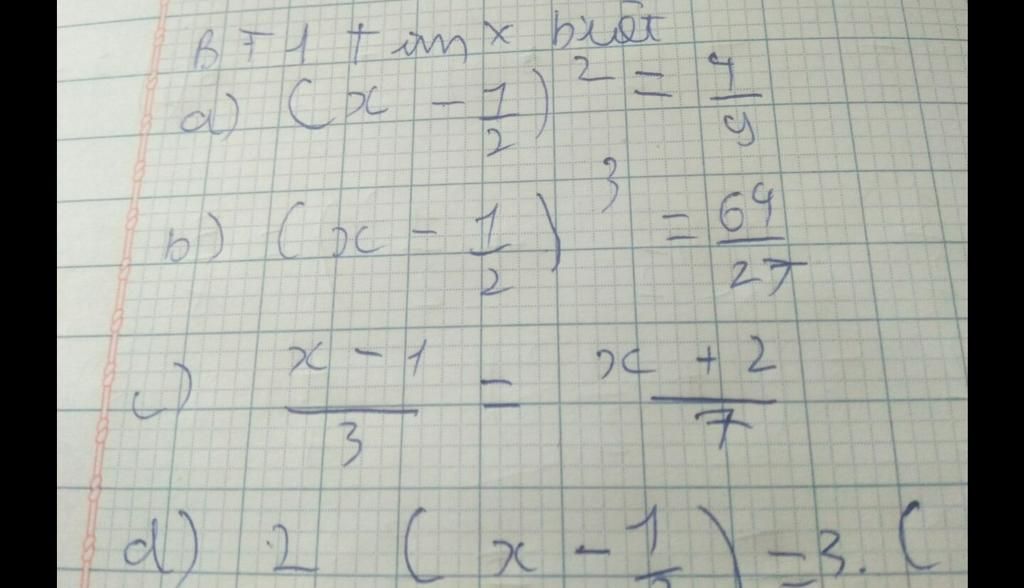 BT1 tìm x biết
a) (x - 1/2)² = 4/9
b) (x - 1/2)³ = 64/27
c) x - 1 / 3 = x + 2 / 7
d) 2 (x - 1/2) = 3. (